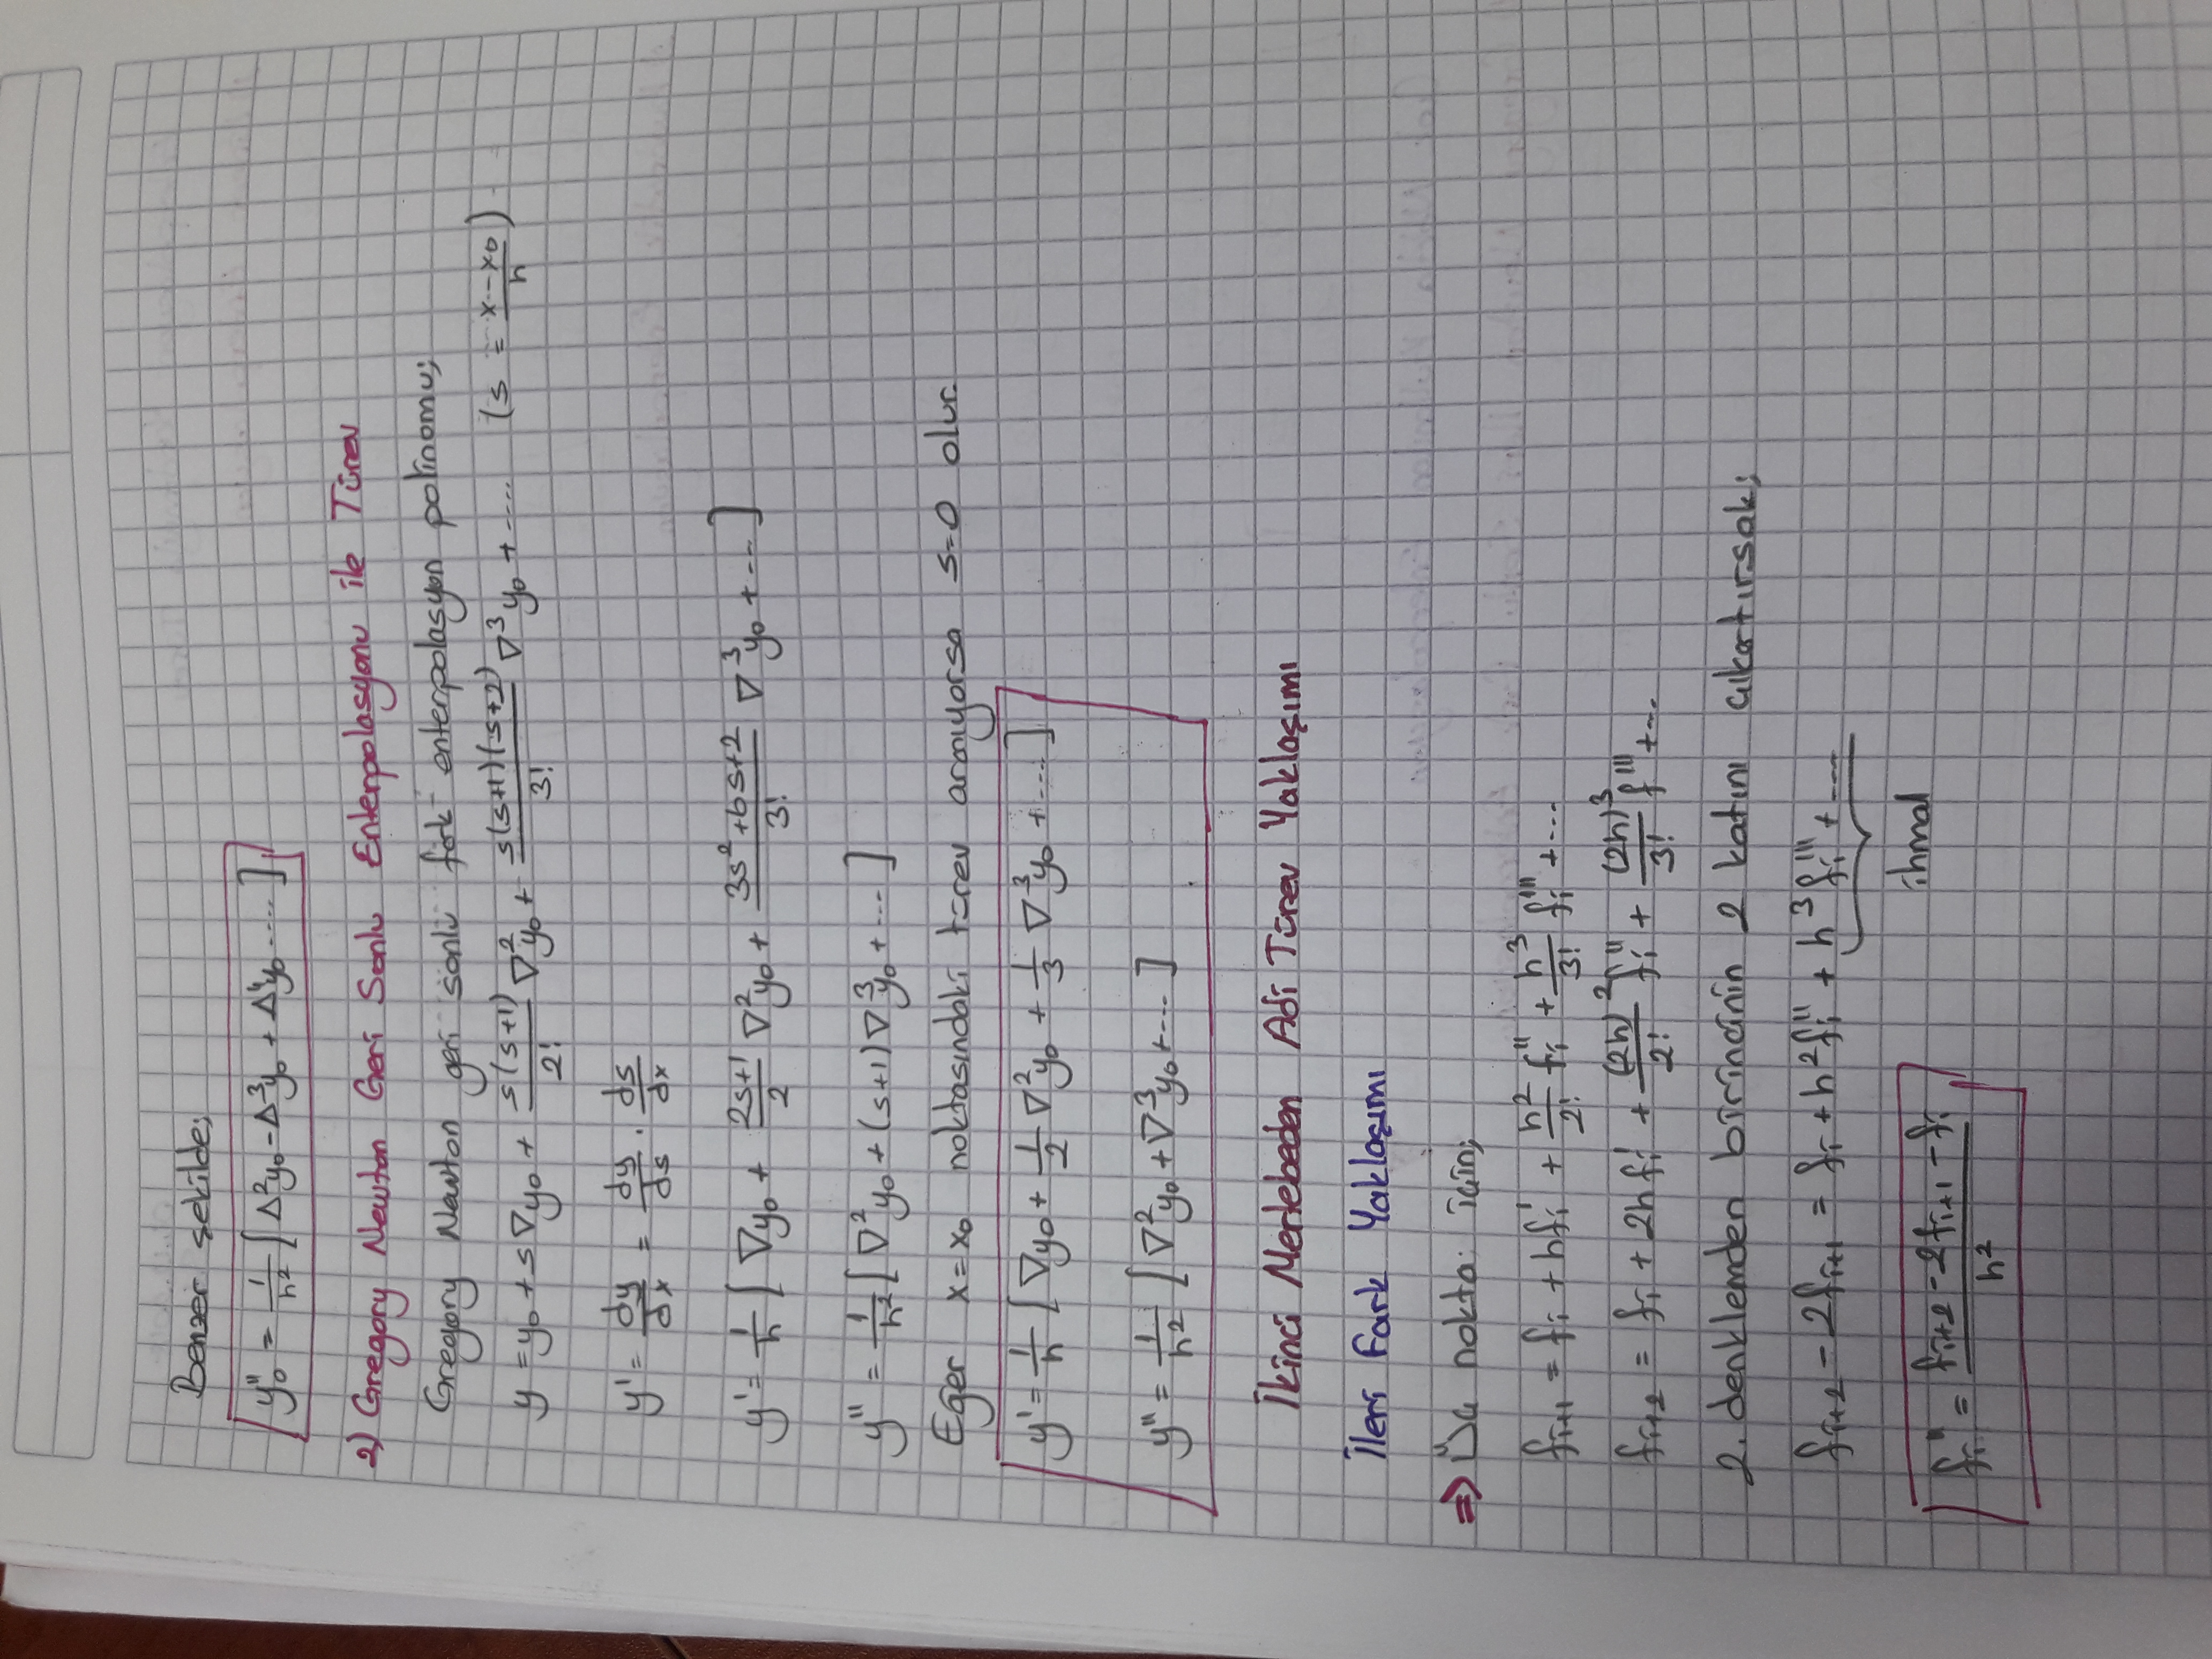 Benzer şekilde;
y₀'' = 1/h² [ Δ²y₀ - Δ³y₀ + Δ⁴y₀ .... ]
2) Gregory Newton Geri Sonlu Enterpolasyonu ile Türev
Gregory Newton geri sonlu fark enterpolasyon polinomu;
y = y₀ + s∇y₀ + s(s+1)/2! ∇²y₀ + s(s+1)(s+2)/3! ∇³y₀ + .... (s = x-x₀/h)
y' = dy/dx = dy/ds . ds/dx
y' = 1/h [ ∇y₀ + 2s+1/2 ∇²y₀ + 3s²+6s+2/3! ∇³y₀ + ... ]
y'' = 1/h² [ ∇²y₀ + (s+1)∇³y₀ + ... ]
Eğer x=x₀ noktasındaki türev aranıyorsa s=0 olur.
y' = 1/h [ ∇y₀ + 1/2 ∇²y₀ + 1/3 ∇³y₀ + ... ]
y'' = 1/h² [ ∇²y₀ + ∇³y₀ + ... ]
İkinci Mertebeden Adi Türev Yaklaşımı
İleri Fark Yaklaşımı
⇒ Üç nokta için;
fᵢ₊₁ = fᵢ + hfᵢ' + h²/2! fᵢ'' + h³/3! fᵢ''' + ...
fᵢ₊₂ = fᵢ + 2hfᵢ' + (2h)²/2! fᵢ'' + (2h)³/3! f''' + ...
2. denklemden birincinin 2 katını çıkartırsak;
fᵢ₊₂ - 2fᵢ₊₁ = fᵢ + h²fᵢ'' + h³fᵢ''' + ...
ihmal
fᵢ'' = fᵢ₊₂ - 2fᵢ₊₁ - fᵢ / h²